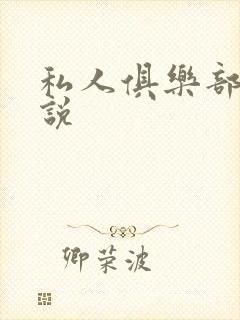 私人俱樂部
說
卿荣波